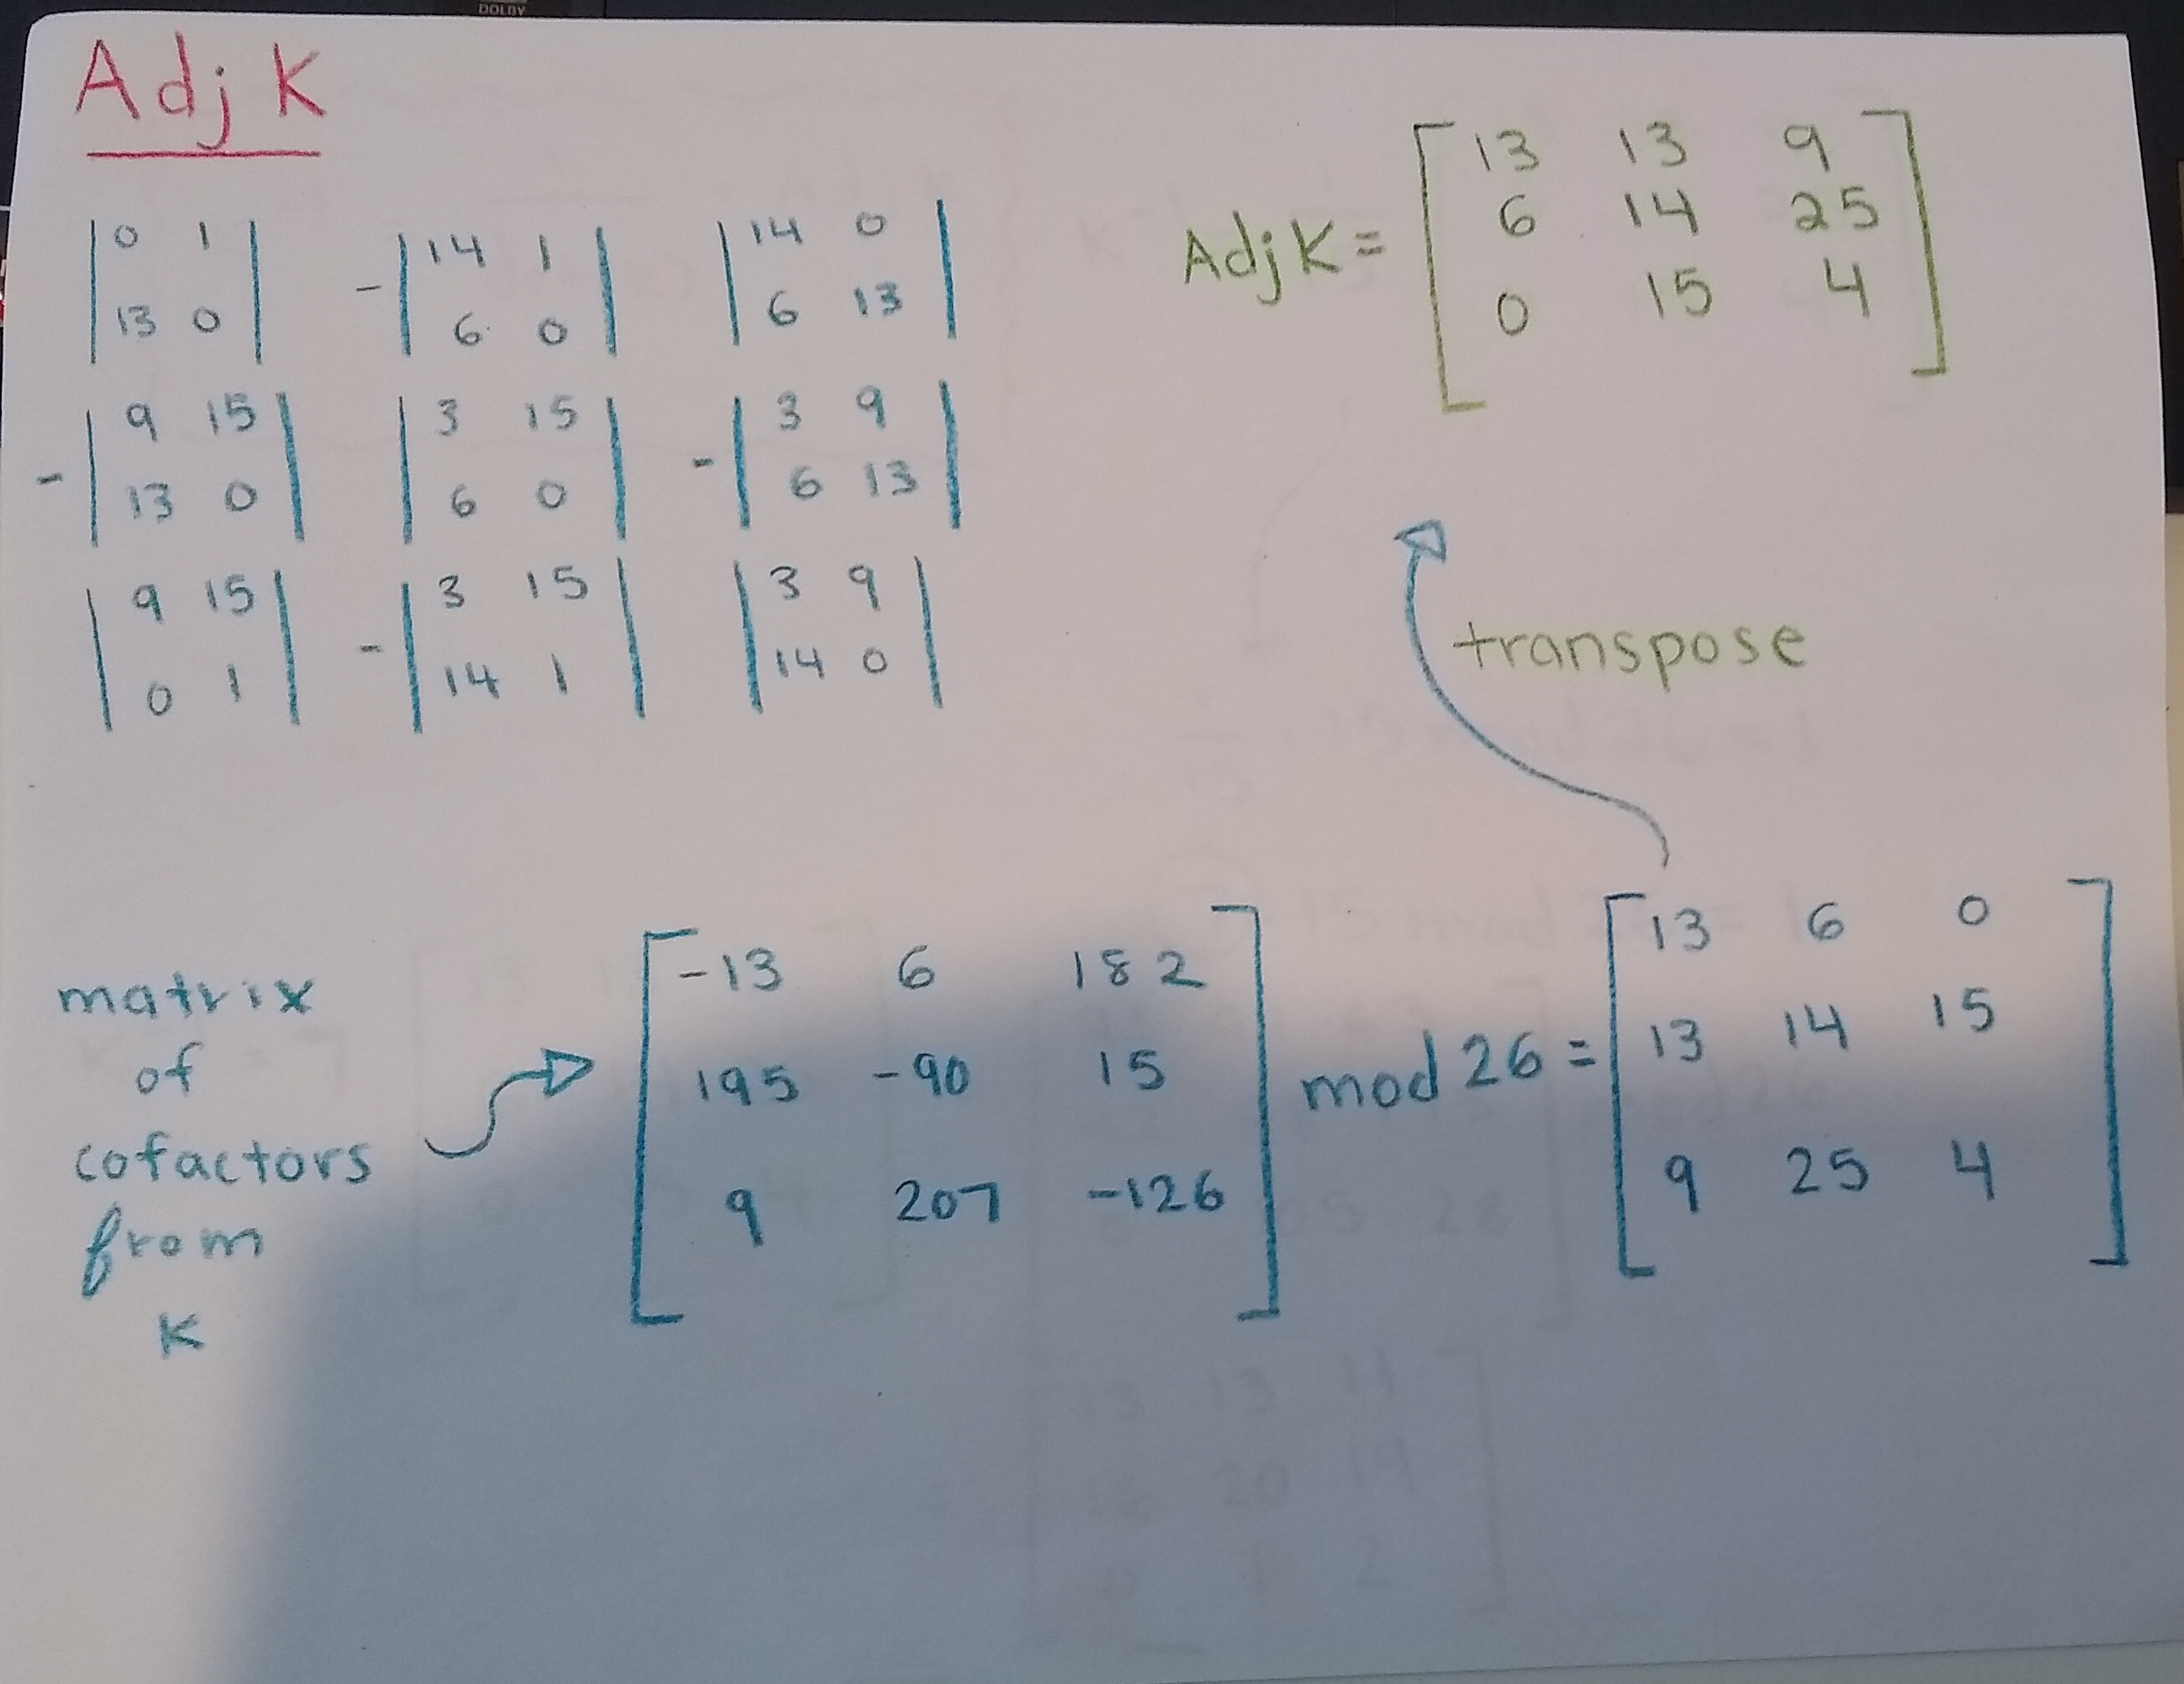 DOLBY
Adj K
| 0 1 | - | 14 1 | | 14 0 |
| 13 0 | | 6 0 | | 6 13 |
- | 9 15 | | 3 15 | - | 3 9 |
| 13 0 | | 6 0 | | 6 13 |
| 9 15 | - | 3 15 | | 3 9 |
| 0 1 | | 14 1 | | 14 0 |
Adj K =
[ 13 13 9 ]
[ 6 14 25 ]
[ 0 15 4 ]
transpose
matrix
of
cofactors
from
K
[ -13 6 182 ]
[ 195 -90 15 ]
[ 9 207 -126 ]
mod 26 =
[ 13 6 0 ]
[ 13 14 15 ]
[ 9 25 4 ]